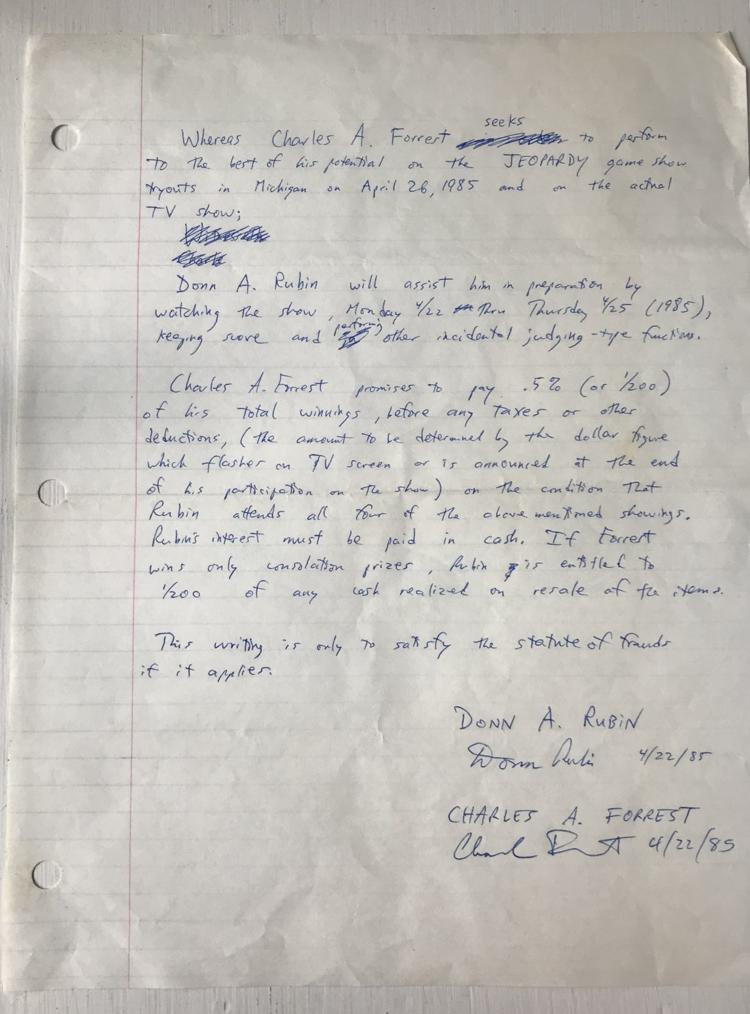 seeks
Whereas Charles A. Forrest to perform
to the best of his potential on the JEOPARDY game show
tryouts in Michigan on April 26, 1985 and on the actual
TV show;
Donn A. Rubin will assist him in preparation by
watching the show, Monday 4/22 thru Thursday 4/25 (1985),
performing
keeping score and other incidental judging-type functions.
Charles A. Forrest promises to pay .5% (or 1/200)
of his total winnings, before any taxes or other
deductions, (the amount to be determined by the dollar figure
which flashes on TV screen or is announced at the end
of his participation on the show) on the condition that
Rubin attends all four of the above mentioned showings.
Rubin's interest must be paid in cash. If Forrest
wins only consolation prizes, Rubin is entitled to
1/200 of any cash realized on resale of the items.
This writing is only to satisfy the statute of frauds
if it applies.
DONN A. RUBIN
Donn Rubin 4/22/85
CHARLES A. FORREST
4/22/85